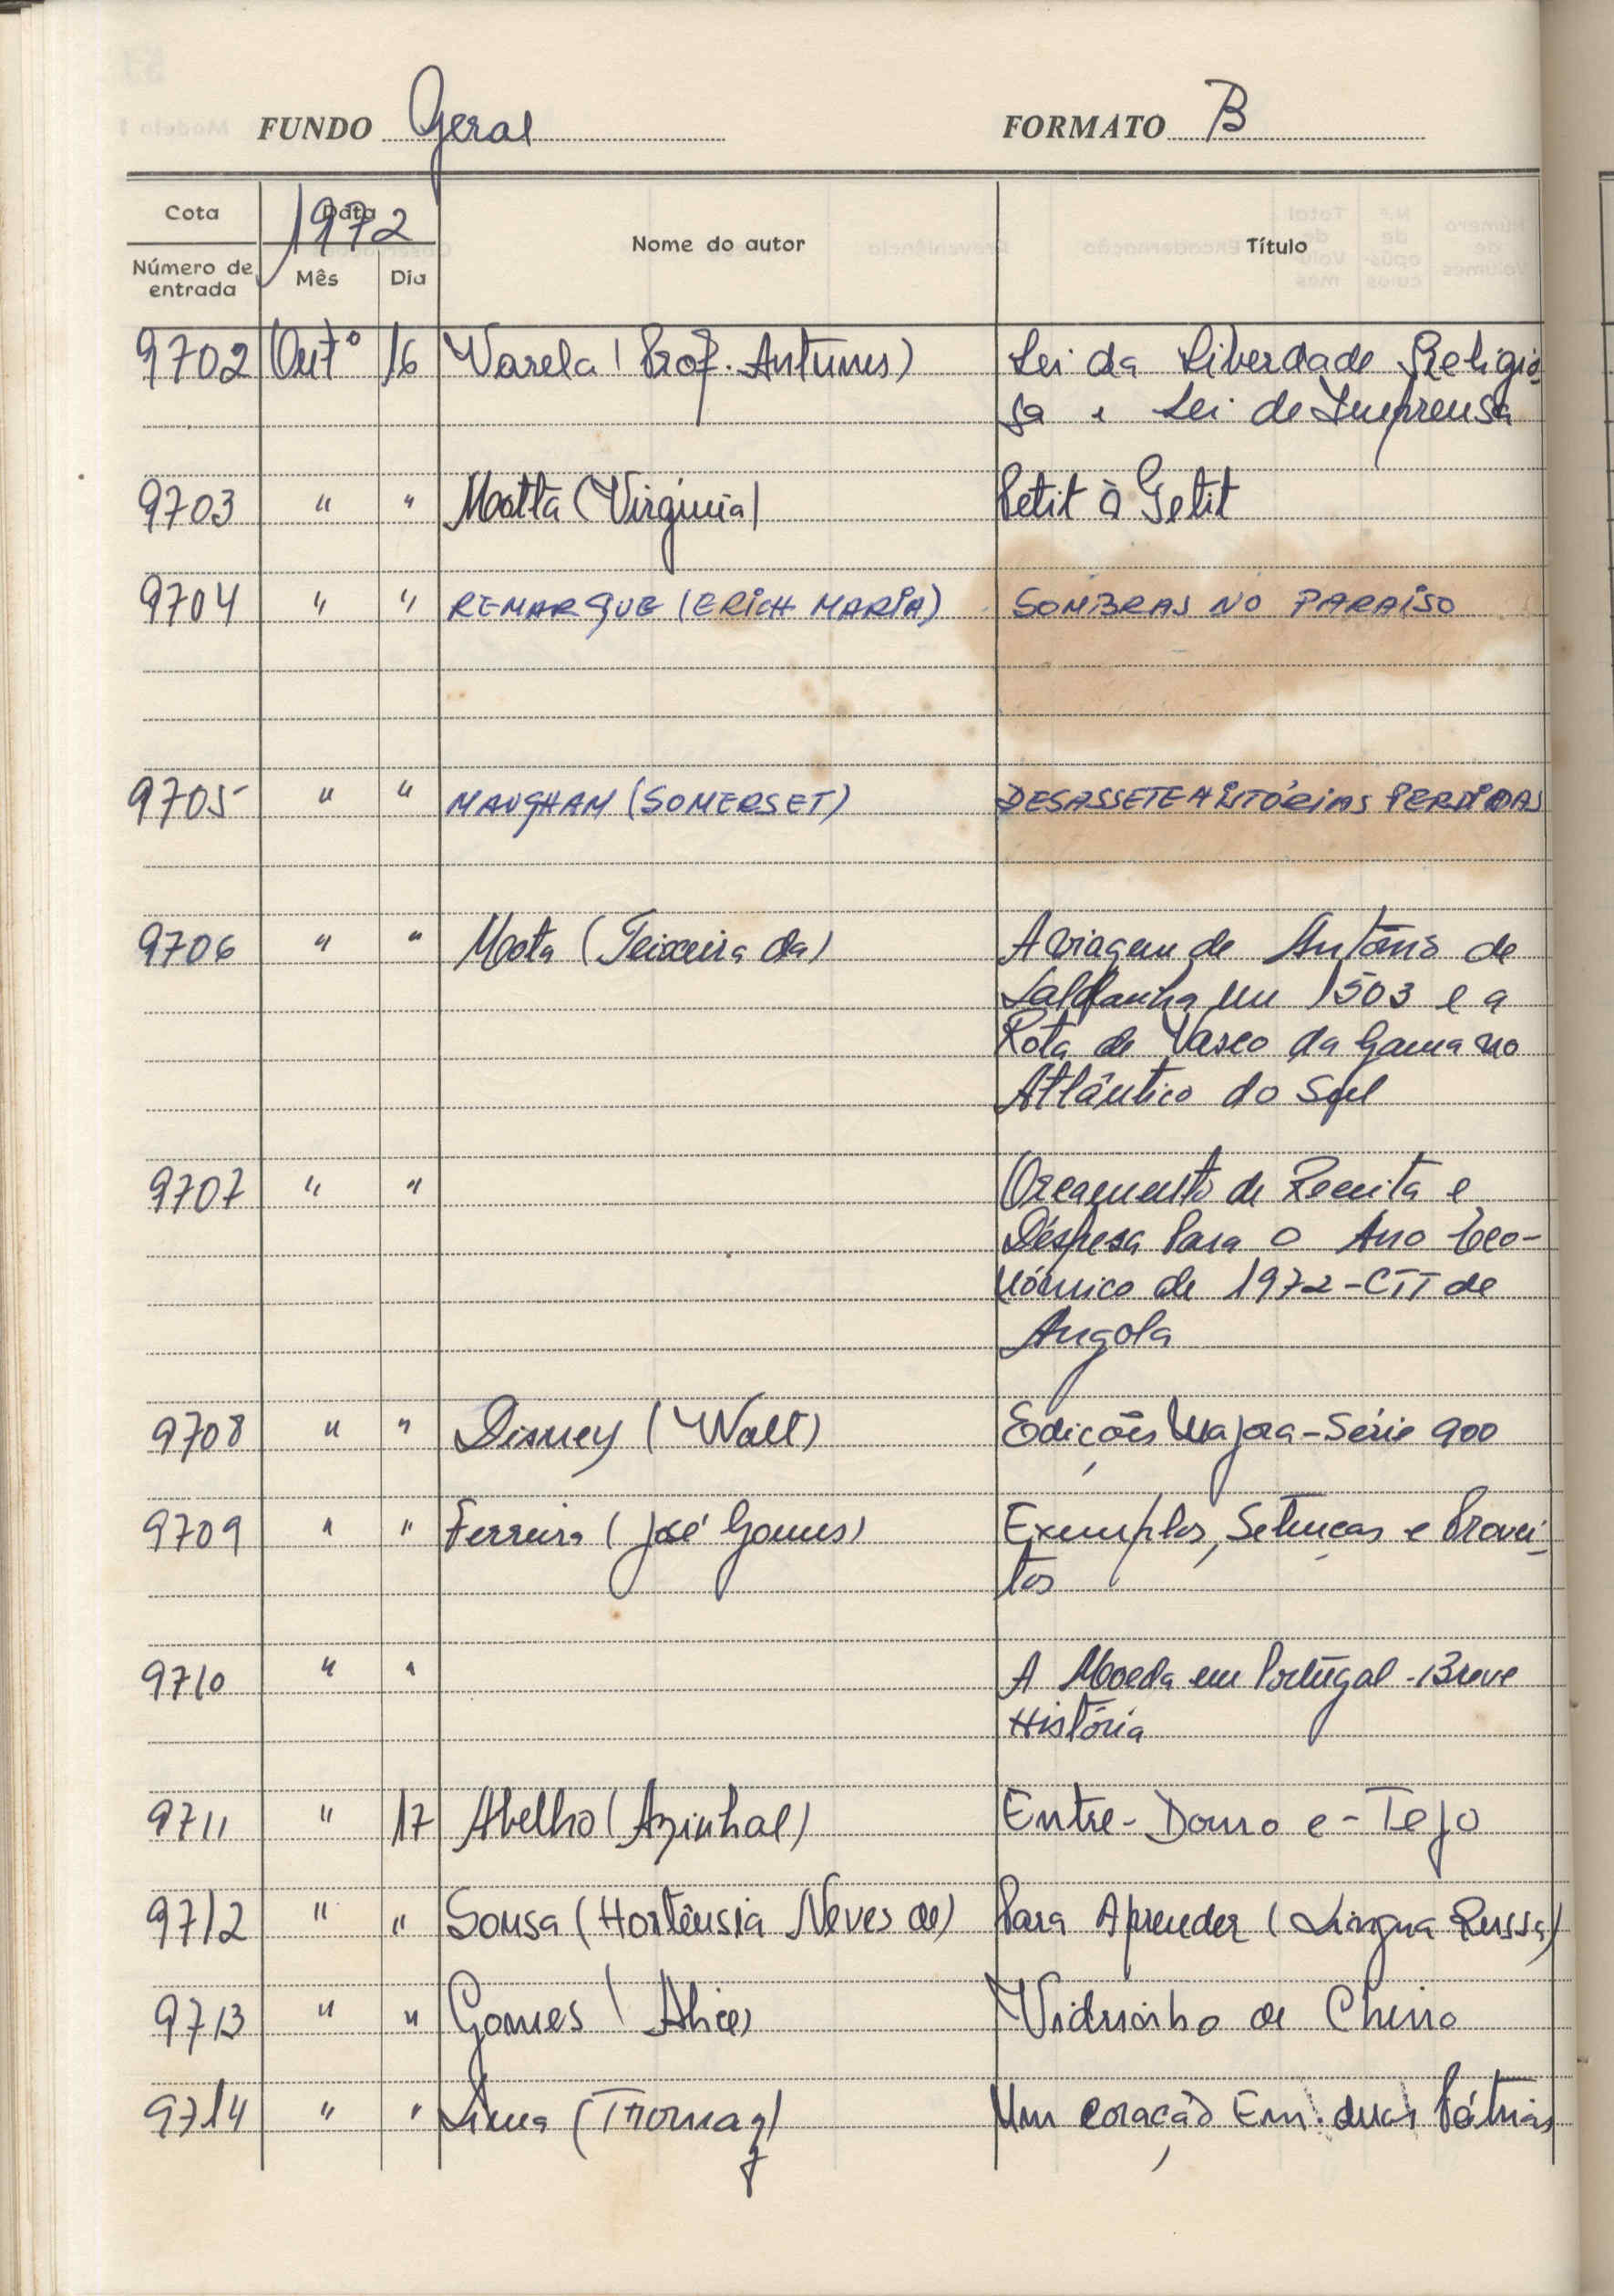 FUNDO Geral FORMATO B
Cota Data 1972 Nome do autor Título
Número de entrada Mês Dia
9702 Outº 16 Varela (Prof. Antunes) Lei da Liberdade Religio-
sa e Lei de Imprensa
9703 " " Motta (Virgínia) Petit à Petit
9704 " " REMARQUE (ERICH MARIA) SOMBRAS NO PARAISO
9705 " " MAUGHAM (SOMERSET) DESASSETE HISTÓRIAS PERDIDAS
9706 " " Mota (Teixeira da) A viagem de António de
Saldanha em 1503 e a
Rota de Vasco da Gama no
Atlântico do Sul
9707 " " Orçamento de Receita e
Despesa Para o Ano Eco-
nómico de 1972 - CTT de
Angola
9708 " " Disney (Walt) Edições Majora - Série 900
9709 " " Ferreira (José Gomes) Exemplos, Setenças e
tos
9710 " " A Moeda em Portugal - Breve
História
9711 " 17 Abelho (Azinhal) Entre-Douro e-Tejo
9712 " " Sousa (Hortênsia Neves de) Para Aprender (Lingua Russa)
9713 " " Gomes (Alice) Vidrinho de Cheiro
9714 " " Lima (Thomaz) Um coração Em duas Pátrias